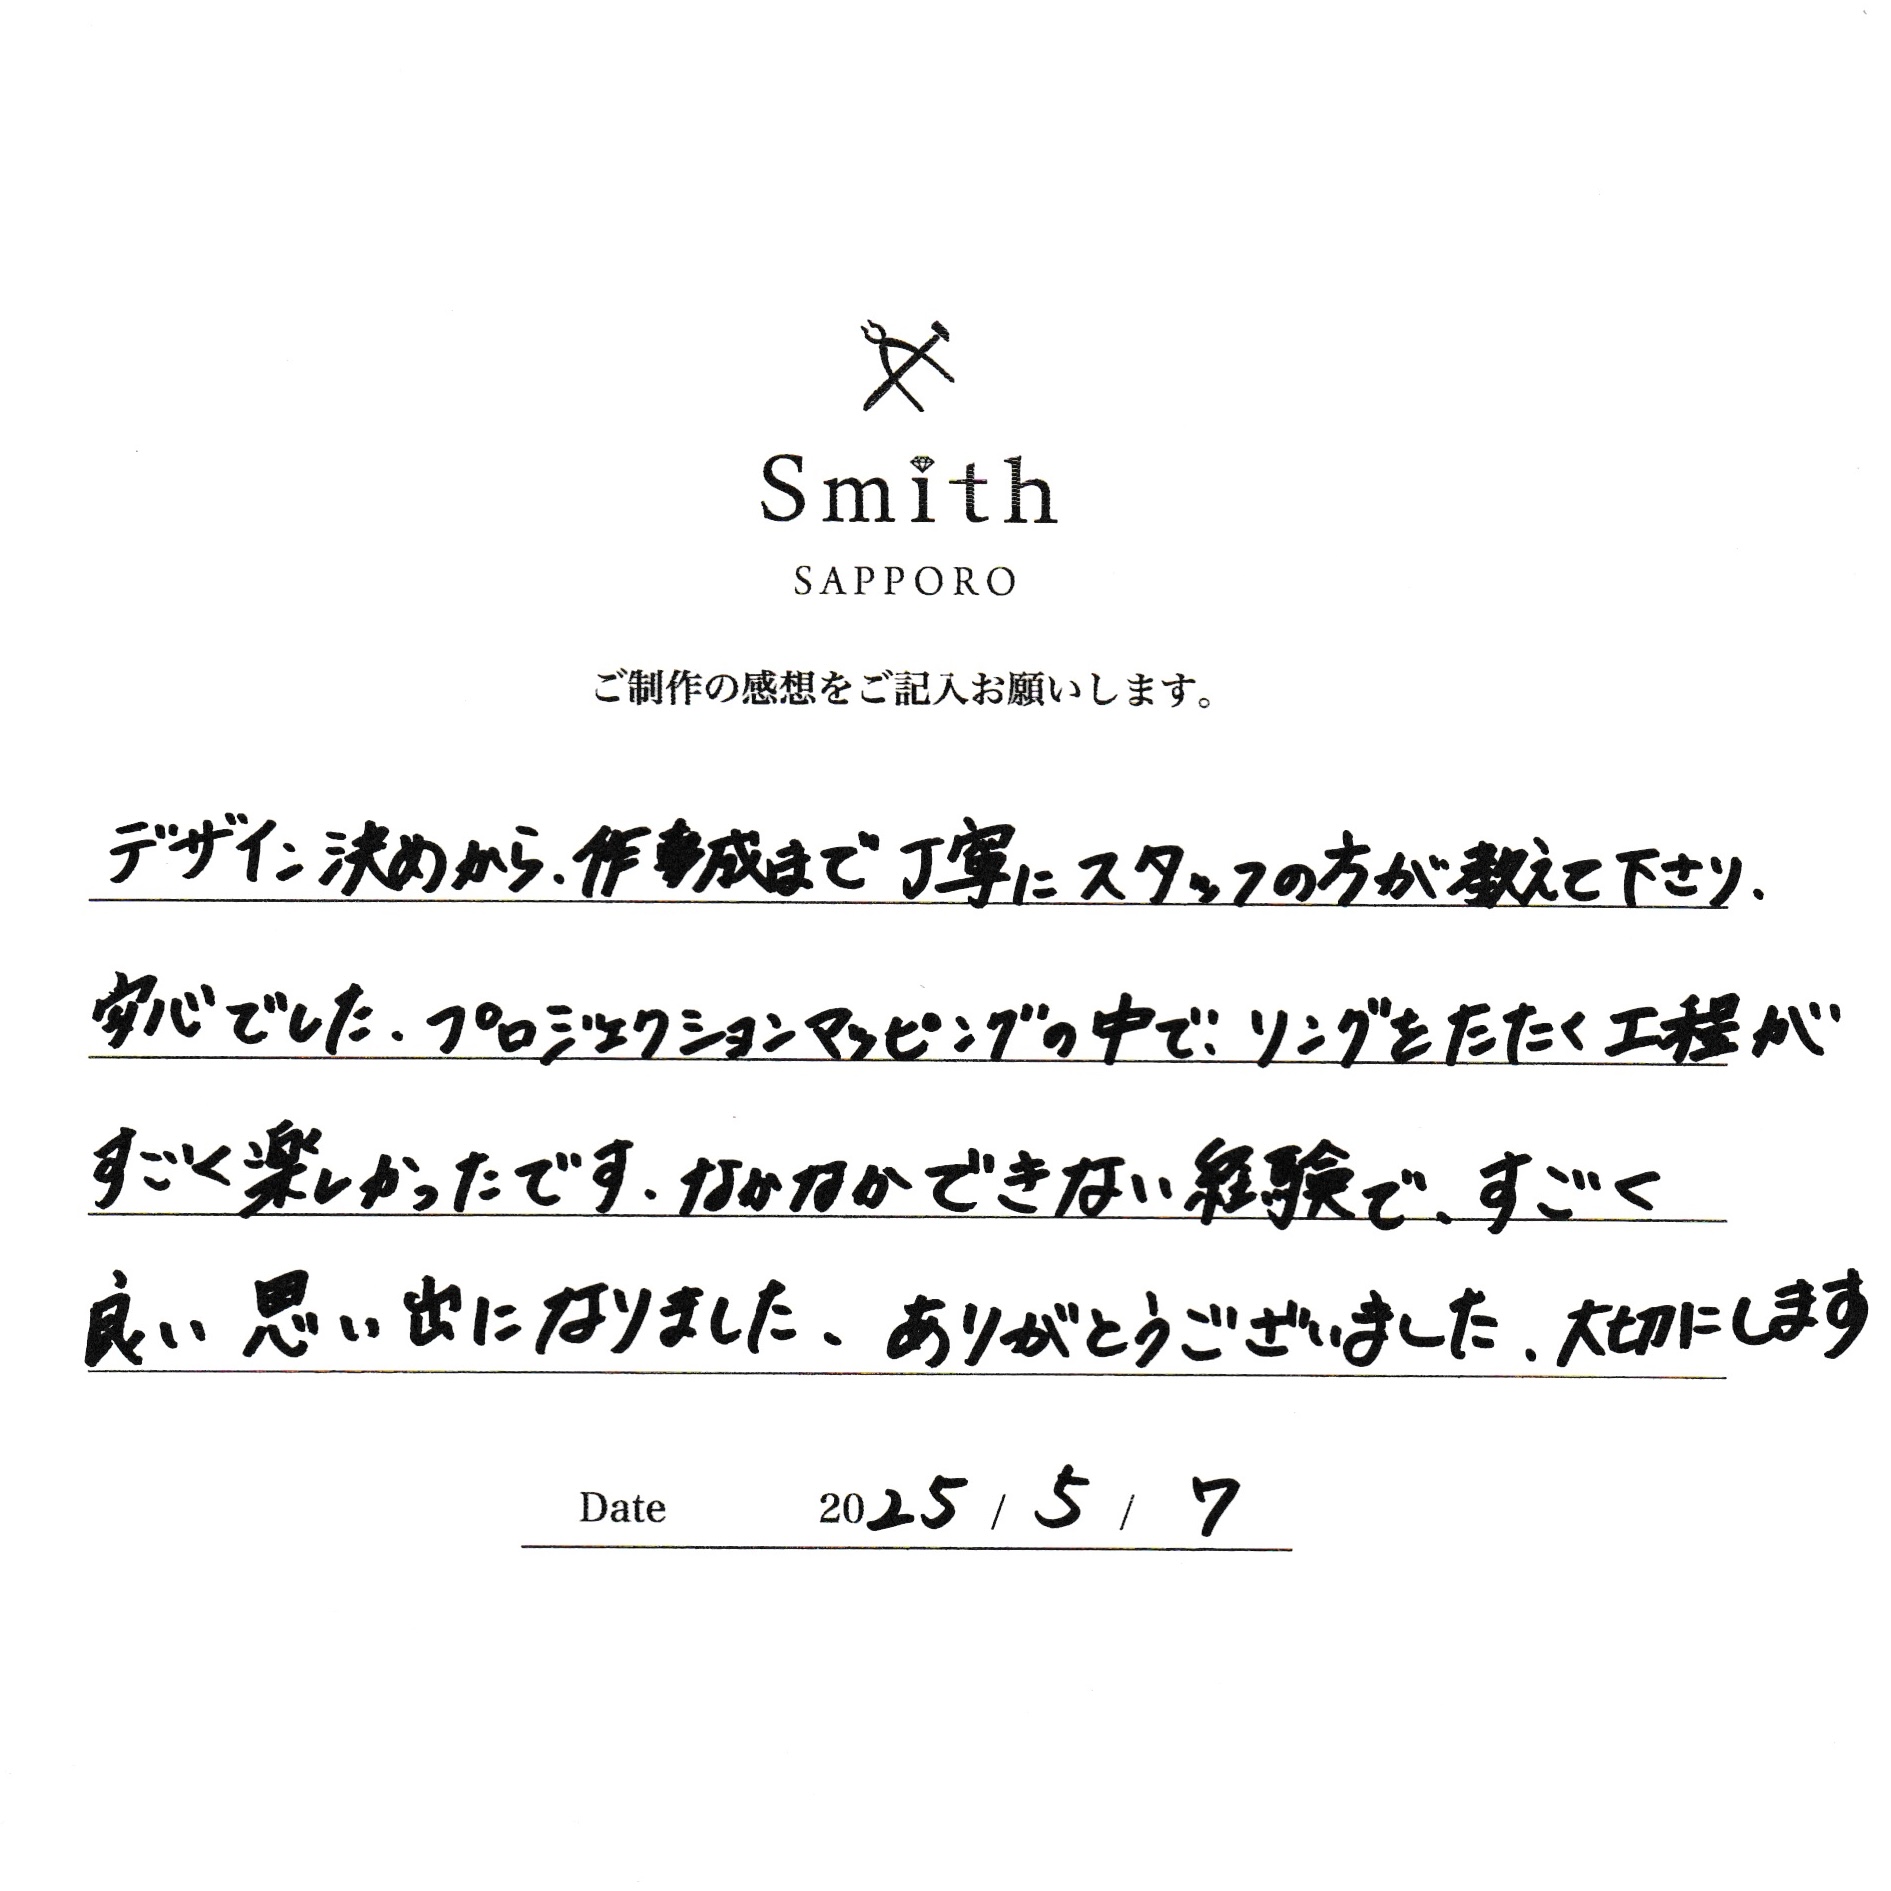 Smith
SAPPORO
ご制作の感想をご記入お願いします。
デザイン決めから、作成まで丁寧にスタッフの方が教えて下さり、
安心でした。プロジェクションマッピングの中で、リングをたたく工程が
すごく楽しかったです。なかなかできない経験で、すごく
良い思い出になりました。ありがとうございました。大切にします
Date 2025 / 5 / 7